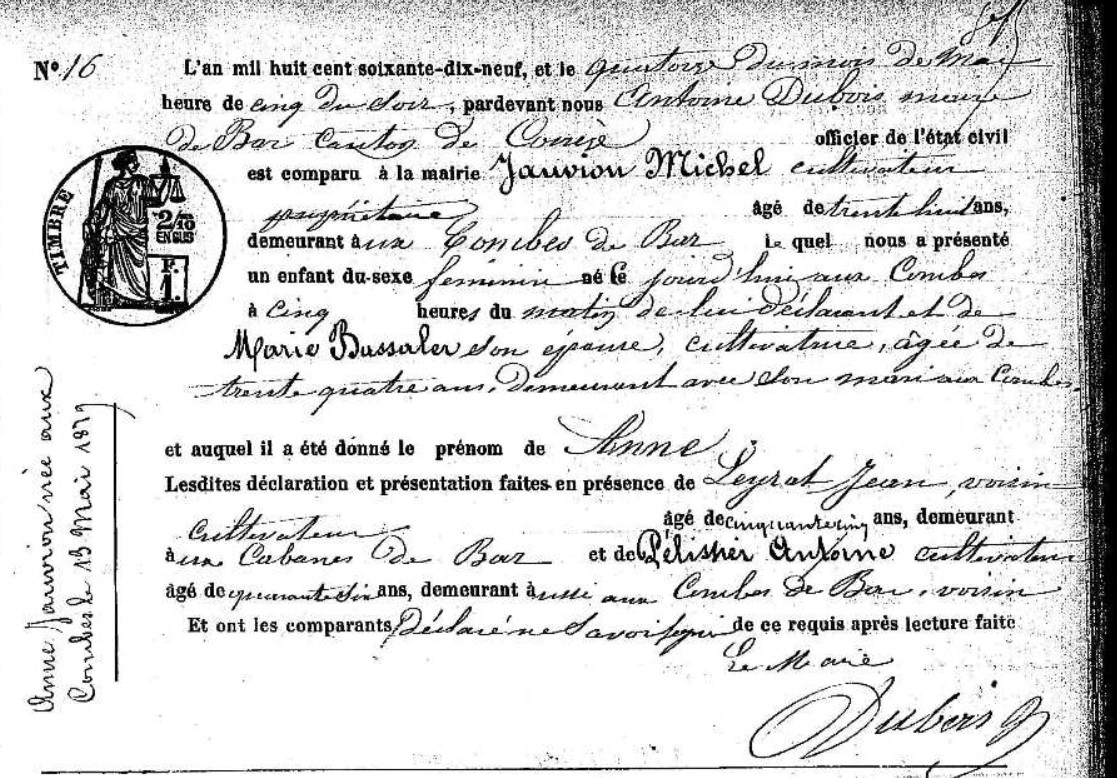 N° 16
L'an mil huit cent soixante-dix-neuf, et le quatorze du mois de Mai
heure de cinq du soir, pardevant nous Antoine Dubois maire
de Bar canton de Corrèze officier de l'état civil
est comparu à la mairie Jauvion Michel cultivateur
propriétaire âgé de trente huit ans,
demeurant à ux Combes de Bar le quel nous a présenté
un enfant du sexe feminin né Ce jourd'hui aux Combes
à cinq heures du matin de lui déclarant et de
Marie Bassaler son épouse, cultivatrice, âgée de
trente quatre ans, demeurant avec son mari aux Combes.
et auquel il a été donné le prénom de Anne
Lesdites déclaration et présentation faites en présence de Leyrat Jean, voisin
cultivateur âgé de cinquante cinq ans, demeurant
à ux Cabanes de Bar et de Pélissier Antoine cultivateur
âgé de quarante six ans, demeurant à ussi aux Combes de Bar, voisin
Et ont les comparants déclaré ne savoir signer de ce requis après lecture faite
Le Maire
Dubois
TIMBRE
2/10
EN SUS
F.
1.
Anne Jauvion née aux
Combes le 13 Mai 1879